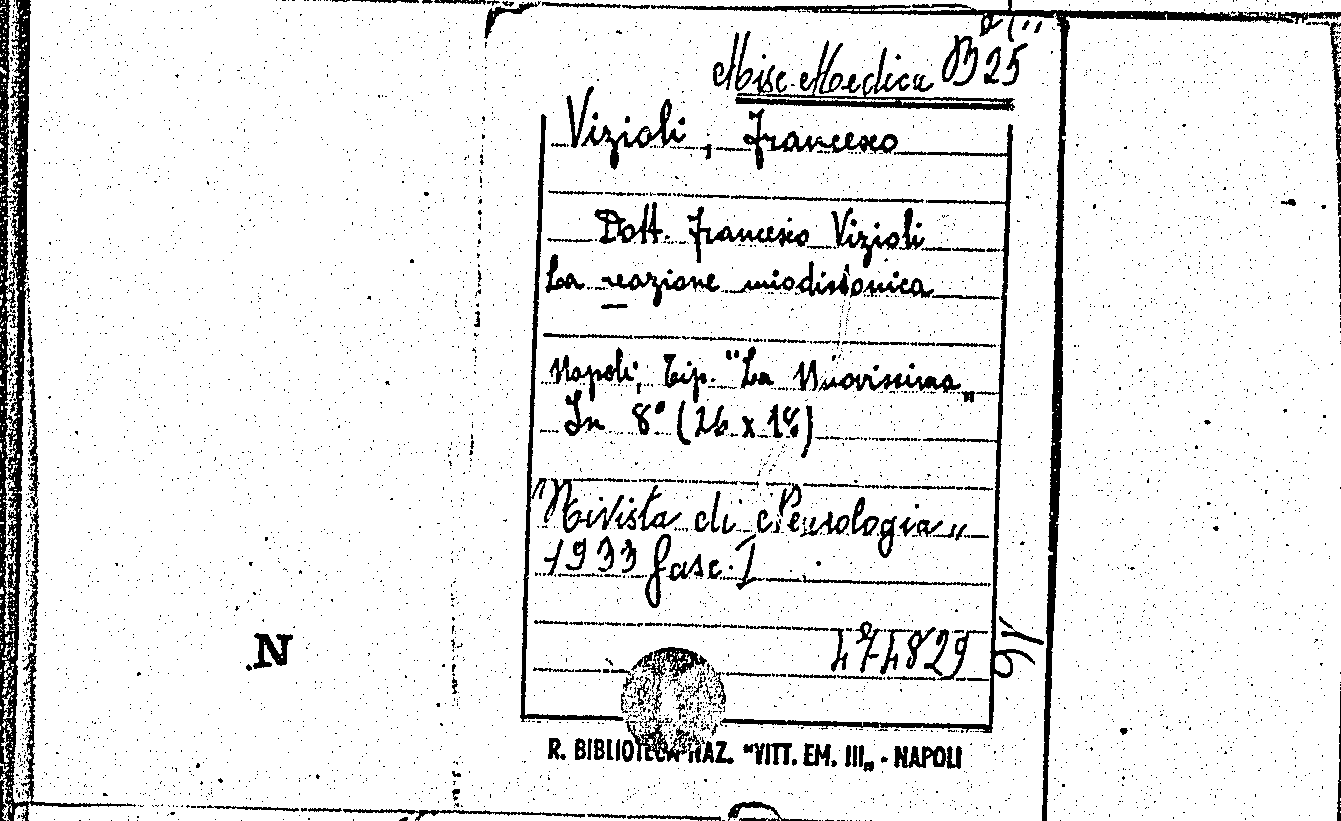 Misc. Medica B 25
Vizioli, Francesco
Dott. Francesco Vizioli
La reazione miodistonica
Napoli, Tip. "La Nuovissima„
In 8° (26 x 18)
"Rivista di Neurologia„
1933 fasc. I
474829
N
R. BIBLIOTECA NAZ. "VITT. EM. III„ - NAPOLI